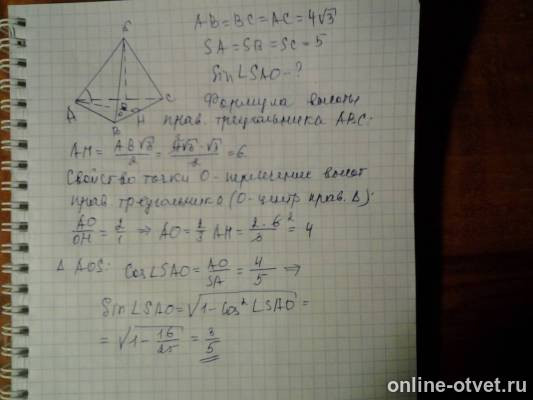 S
A
B
C
H
O
AB = BC = AC = 4√3
SA = SB = SC = 5
Sin∠SAO - ?
Формула высоты
прав. треугольника ABC:
AH = AB√3/2 = 4√3·√3/2 = 6
Свойство точки O - пересечение высот
прав. треугольника (O - центр прав. Δ):
AO/OH = 2/1 ⇒ AO = 2/3 AH = 2·6/3 = 4
Δ AOS: Cos∠SAO = AO/SA = 4/5 ⇒
Sin∠SAO = √(1 - Cos² ∠SAO) =
= √(1 - 16/25) = 3/5
online-otvet.ru